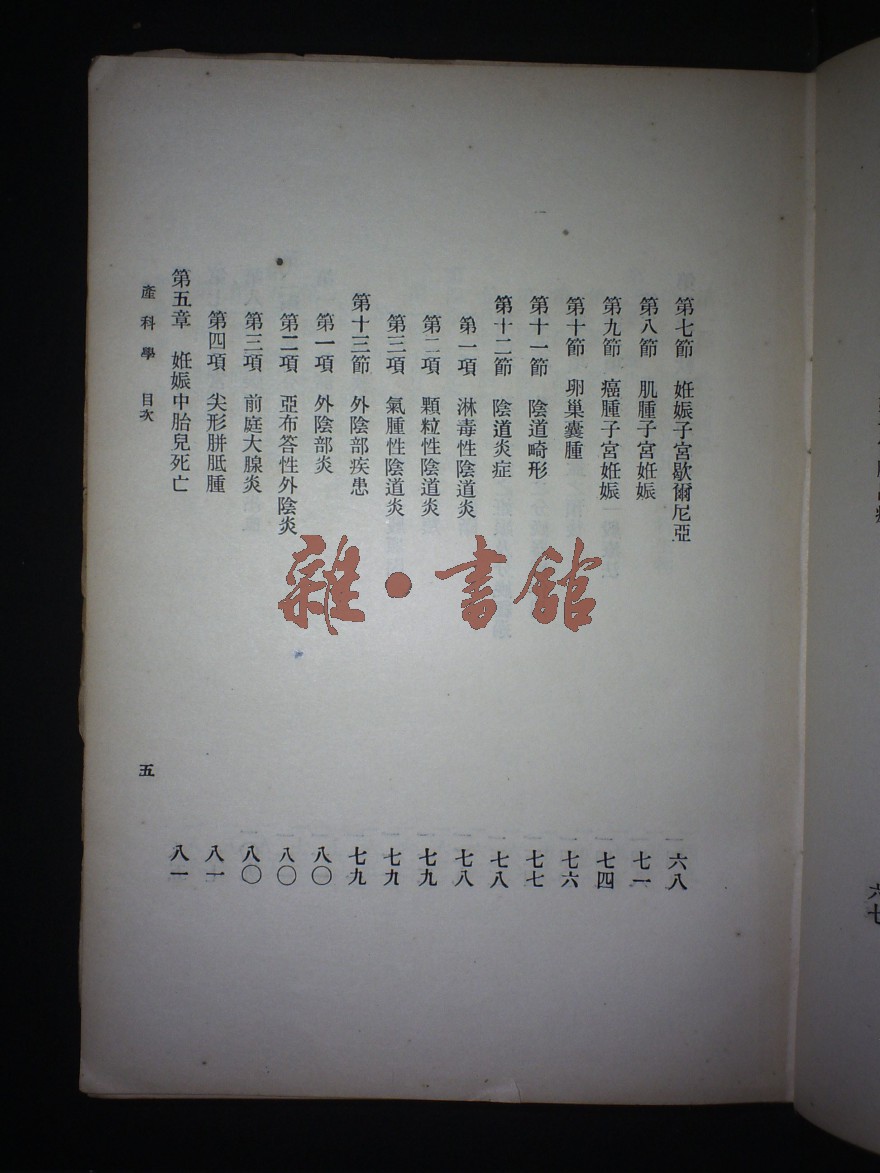 第七節　妊娠子宮歇爾尼亞　六八
第八節　肌腫子宮妊娠　七一
第九節　癌腫子宮妊娠　七四
第十節　卵巢囊腫　七六
第十一節　陰道畸形　七七
第十二節　陰道炎症　七八
第一項　淋毒性陰道炎　七八
第二項　顆粒性陰道炎　七九
第三項　氣腫性陰道炎　七九
第十三節　外陰部疾患　七九
第一項　外陰部炎　八〇
第二項　亞布答性外陰炎　八〇
第三項　前庭大腺炎　八〇
第四項　尖形胼胝腫　八一
第五章　妊娠中胎兒死亡　八一
產科學　目次　五
雜·書館
六七